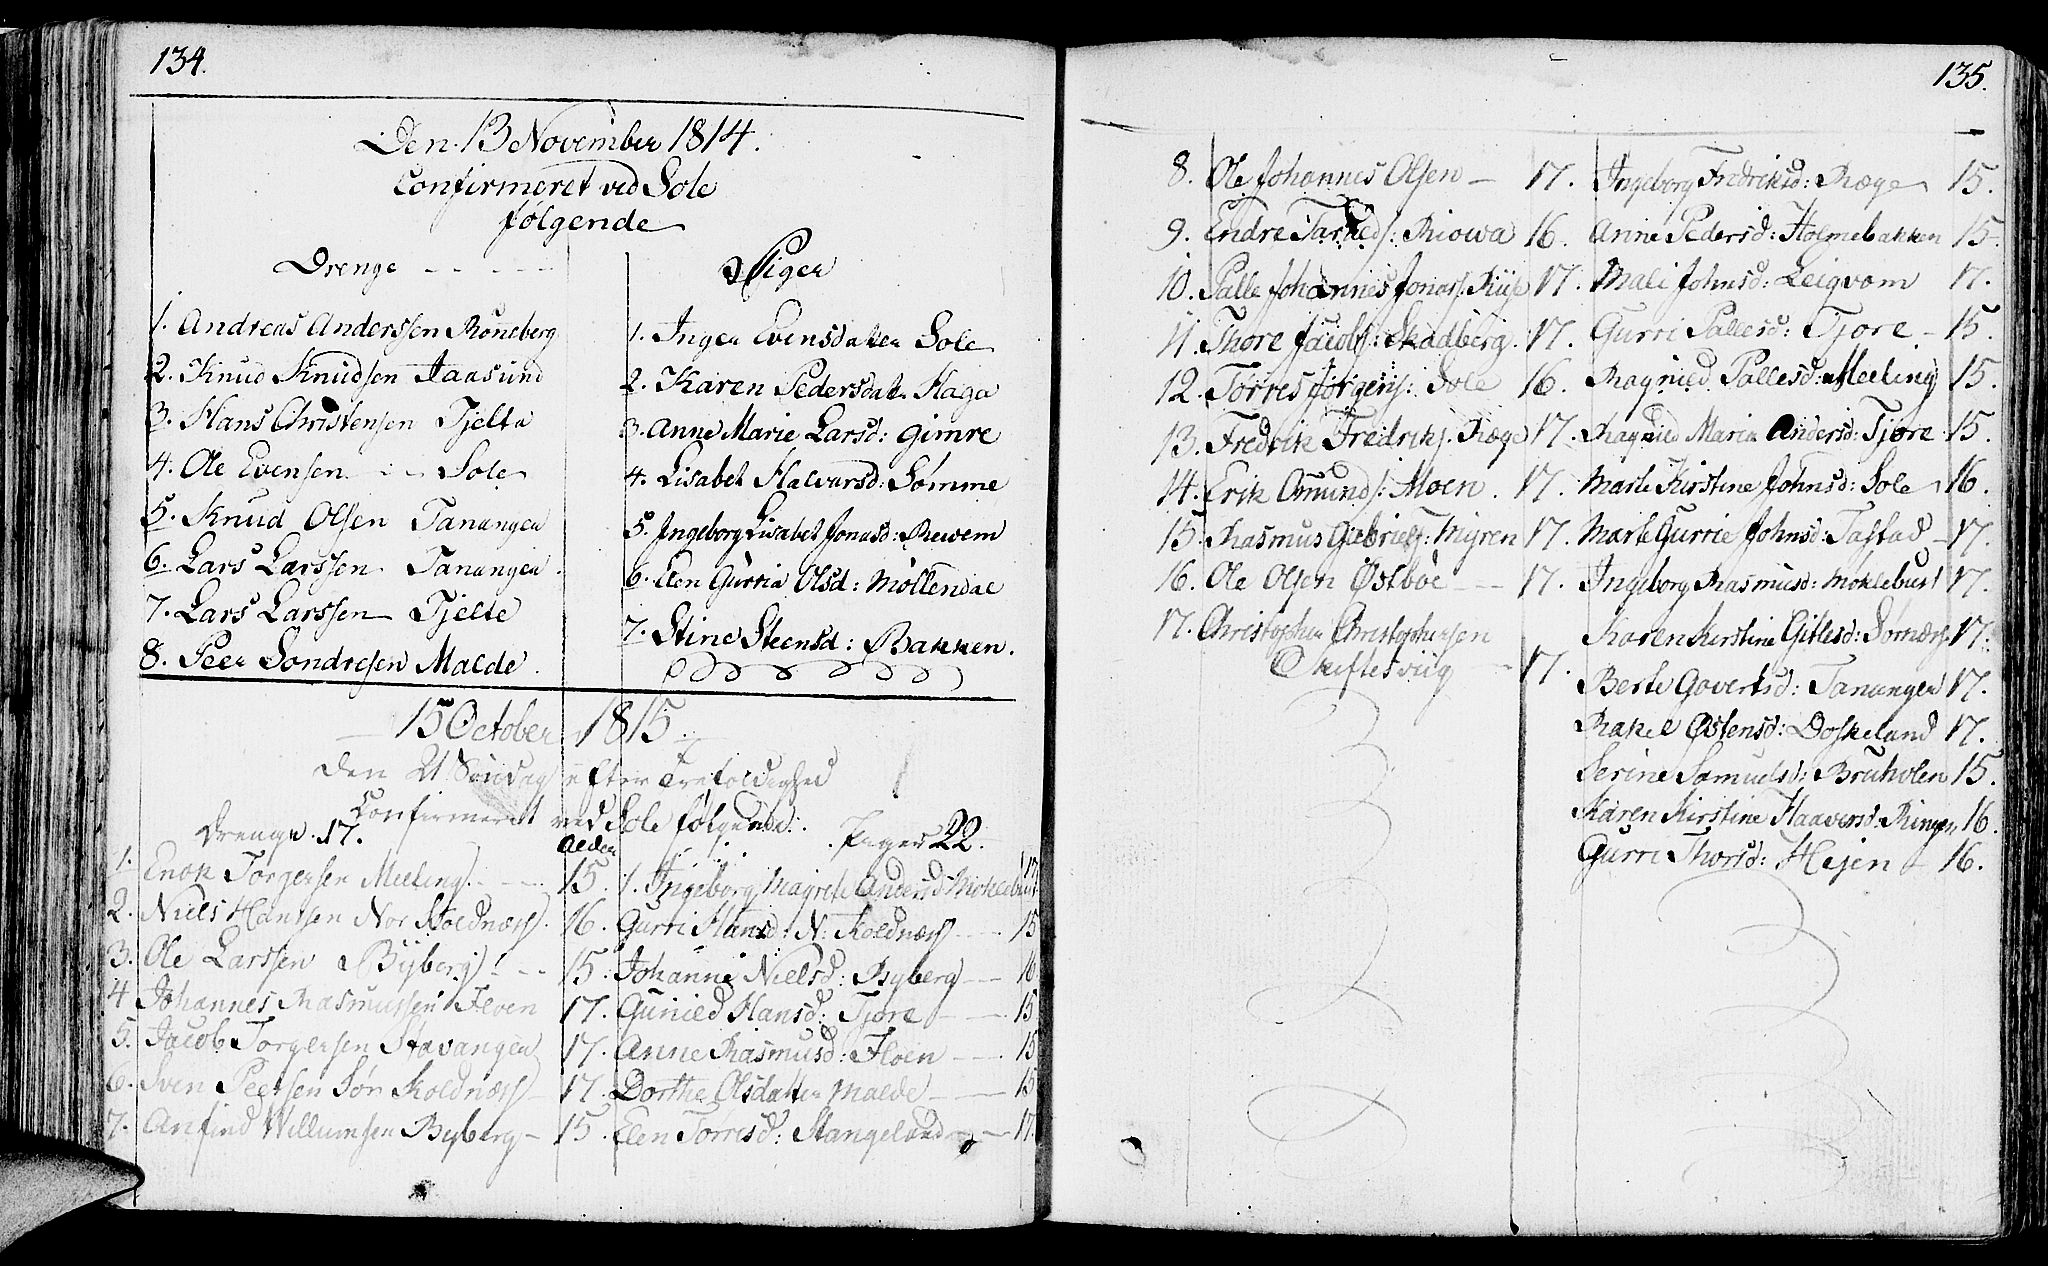 134.
Den 13 November 1814.
Confirmeret ved Sole
følgende
Drenge
1. Andreas Anderssen Röneberg
2. Knud Knudsen Jaasund
3. Hans Christensen Tjelta
4. Ole Evensen Sole
5. Knud Olsen Tanangen
6. Lars Larssen Tanangen
7. Lars Larssen Tjelte
8. Peer Sondresen Malde.
Piger
1. Inger Evensdatter Sole
2. Karen Pedersdatr Haga
3. Anne Marie Larsd: Gimre
4. Lisabet Halvarsd: Sömme
5. Ingeborg Lisabet Jonasd: Rewem
6. Elen Gurria Olsd: Möllendal
7. Stine Steensd: Bakken.
15 October 1815.
Den 21 Söndag efter Trefoldighed
Confirmeret ved Sole følgende.
Drenge. 17.
Alder
1. Enok Torgersen Meeling. 15.
2. Niels Hansen Nor Koldnæss. 16.
3. Ole Larssen Byberg. 15.
4 Johannes Rasmussen Floen 17.
5. Jacob Torgersen Stavangen 17.
6. Sven Peersen Sør Koldnæss 17.
7. Anfind Willumsen Byberg 15.
Piger 22.
1. Ingeborg Magrete Andersd Moklebust 17
Gurri Hansd: N: Koldnæss 15
Johanne Nielsd: Byberg 16
Guniled Hansd: Tjøre 15
Anne Rasmusd: Floen 15
Dorthe Olsdatter Malde 15
Elen Torresd: Stangeland 17.
135.
8. Ole Johannes Olsen 17.
9. Endre Tarald s: Riowa 16.
10. Palle Johannes Jonas s. 17.
11. Thore Jacobs: Skadberg. 17.
12. Törres Jörgens: Sole 16.
13. Fredrik Fredriks. Ræge 17.
14. Erik Omund s: Moen. 17.
15. Rasmus Gabriels: Myren 17.
16. Ole Olsen Østbøe 17.
17. Christopher Christophersen
Skiftesviig 17.
Ingeborg Fredriksd: Ræge 15.
Anne Pedersd: Holmebakken 15.
Mali Johnsd: Leigvam 17.
Gurri Pallesd: Tjore 15.
Ragnild Pallesd: Meeling 15.
Ragnild Maria Andersd: Tjøre 15.
Marte Kirstine Johnsd: Sole 16.
Marte Gurrie Johnsd: Tastad 17.
Ingeborg Rasmusd: Moklebust 17.
Karen Kirstine Gitlesd: 17.
Berte Govertsd: Tanangen 17.
Rakel Østensd: Doskeland 17.
Serine Samuelsd: Bruholen 15.
Karen Kirstine Haaversd. Ringen 16.
Gurri Thorsd: Hejen 16.